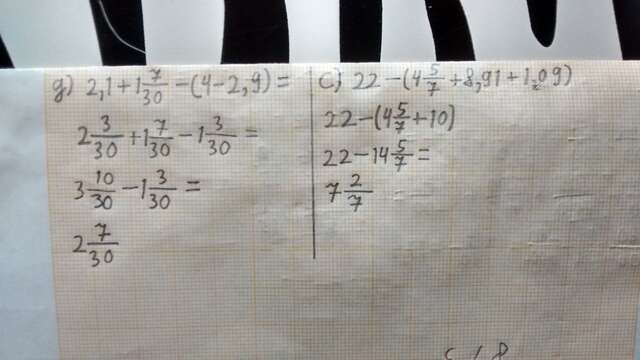 g) 2,1+1 7/30 -(4-2,9)=
2 3/30 +1 7/30 -1 3/30 =
3 10/30 -1 3/30 =
2 7/30
c) 22-(4 5/7 +8,91+1,09)
22-(4 5/7 +10)
22-14 5/7 =
7 2/7